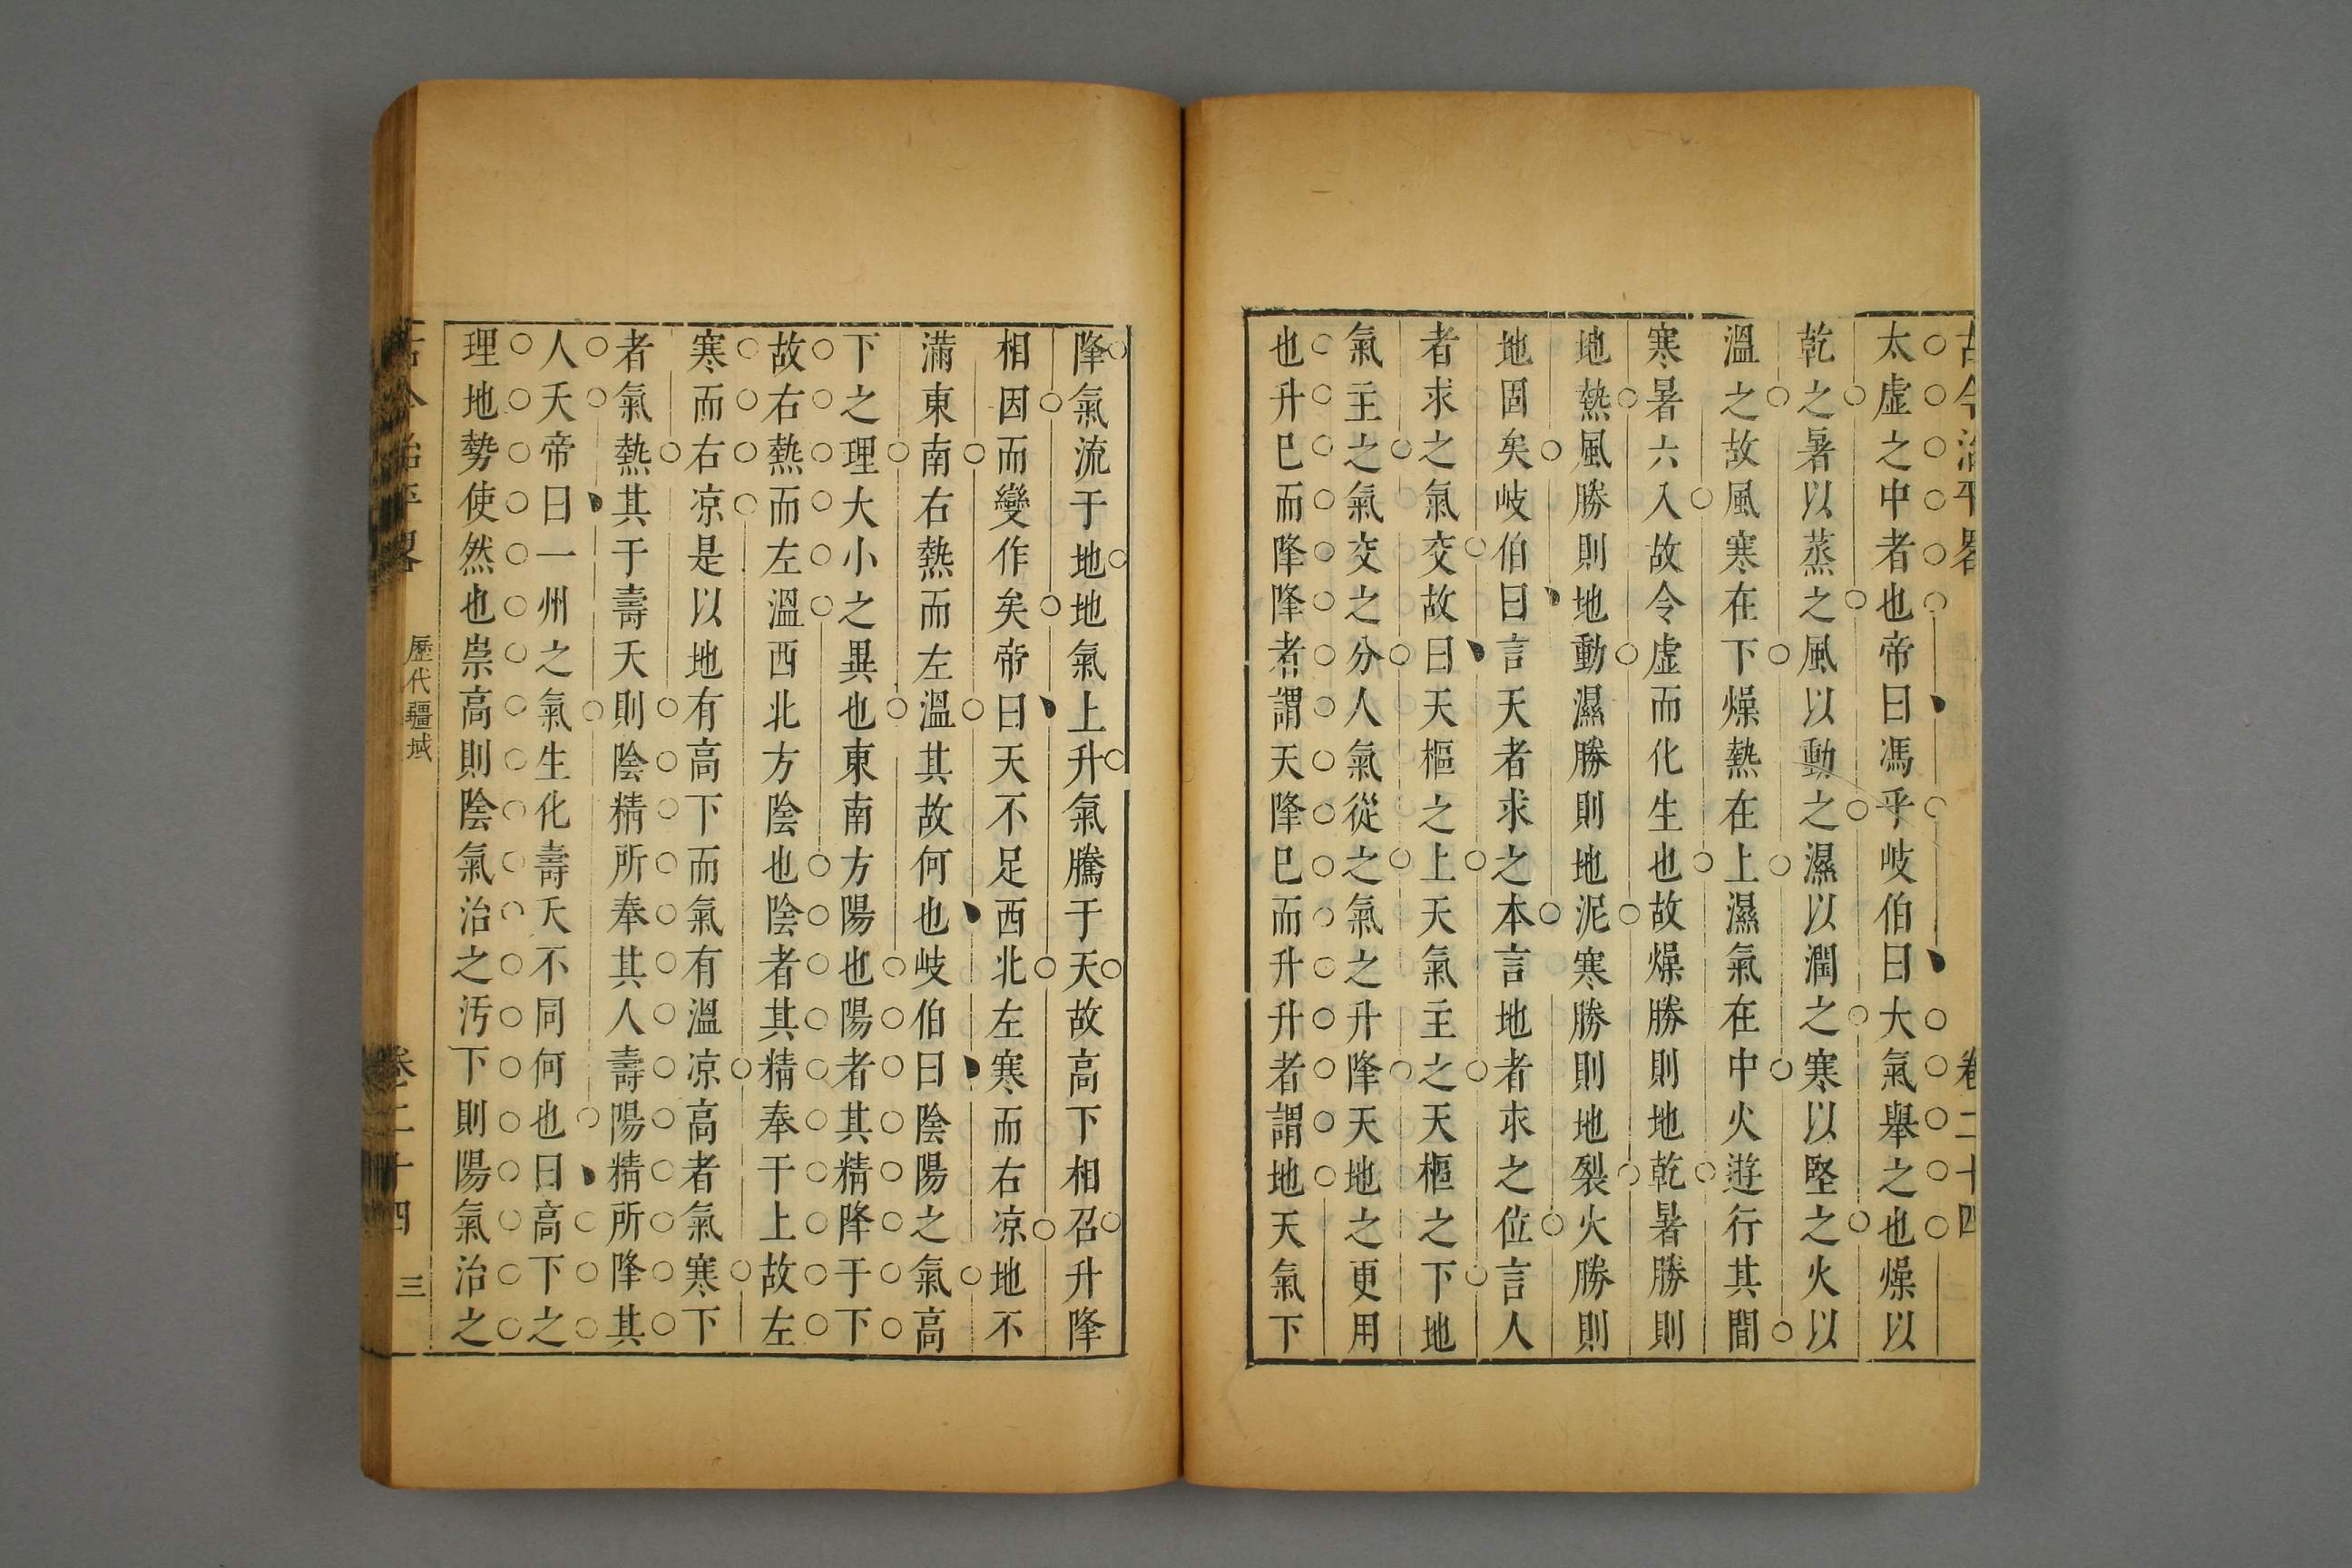 古今治平畧　卷二十四
太虛之中者也帝曰馮乎岐伯曰大氣舉之也燥以
乾之暑以蒸之風以動之濕以潤之寒以堅之火以
溫之故風寒在下燥熱在上濕氣在中火遊行其間
寒暑六入故令虛而化生也故燥勝則地乾暑勝則
地熱風勝則地動濕勝則地泥寒勝則地裂火勝則
地固矣岐伯曰言天者求之本言地者求之位言人
者求之氣交故曰天樞之上天氣主之天樞之下地
氣主之氣交之分人氣從之氣之升降天地之更用
也升已而降降者謂天降已而升升者謂地天氣下
降氣流于地地氣上升氣騰于天故高下相召升降
相因而變作矣帝曰天不足西北左寒而右凉地不
滿東南右熱而左溫其故何也岐伯曰陰陽之氣高
下之理大小之異也東南方陽也陽者其精降于下
故右熱而左溫西北方陰也陰者其精奉于上故左
寒而右凉是以地有高下而氣有溫凉高者氣寒下
者氣熱其于壽夭則陰精所奉其人壽陽精所降其
人夭帝曰一州之氣生化壽夭不同何也曰高下之
理地勢使然也崇高則陰氣治之汚下則陽氣治之
古今治平畧　歷代疆域　卷二十四　三